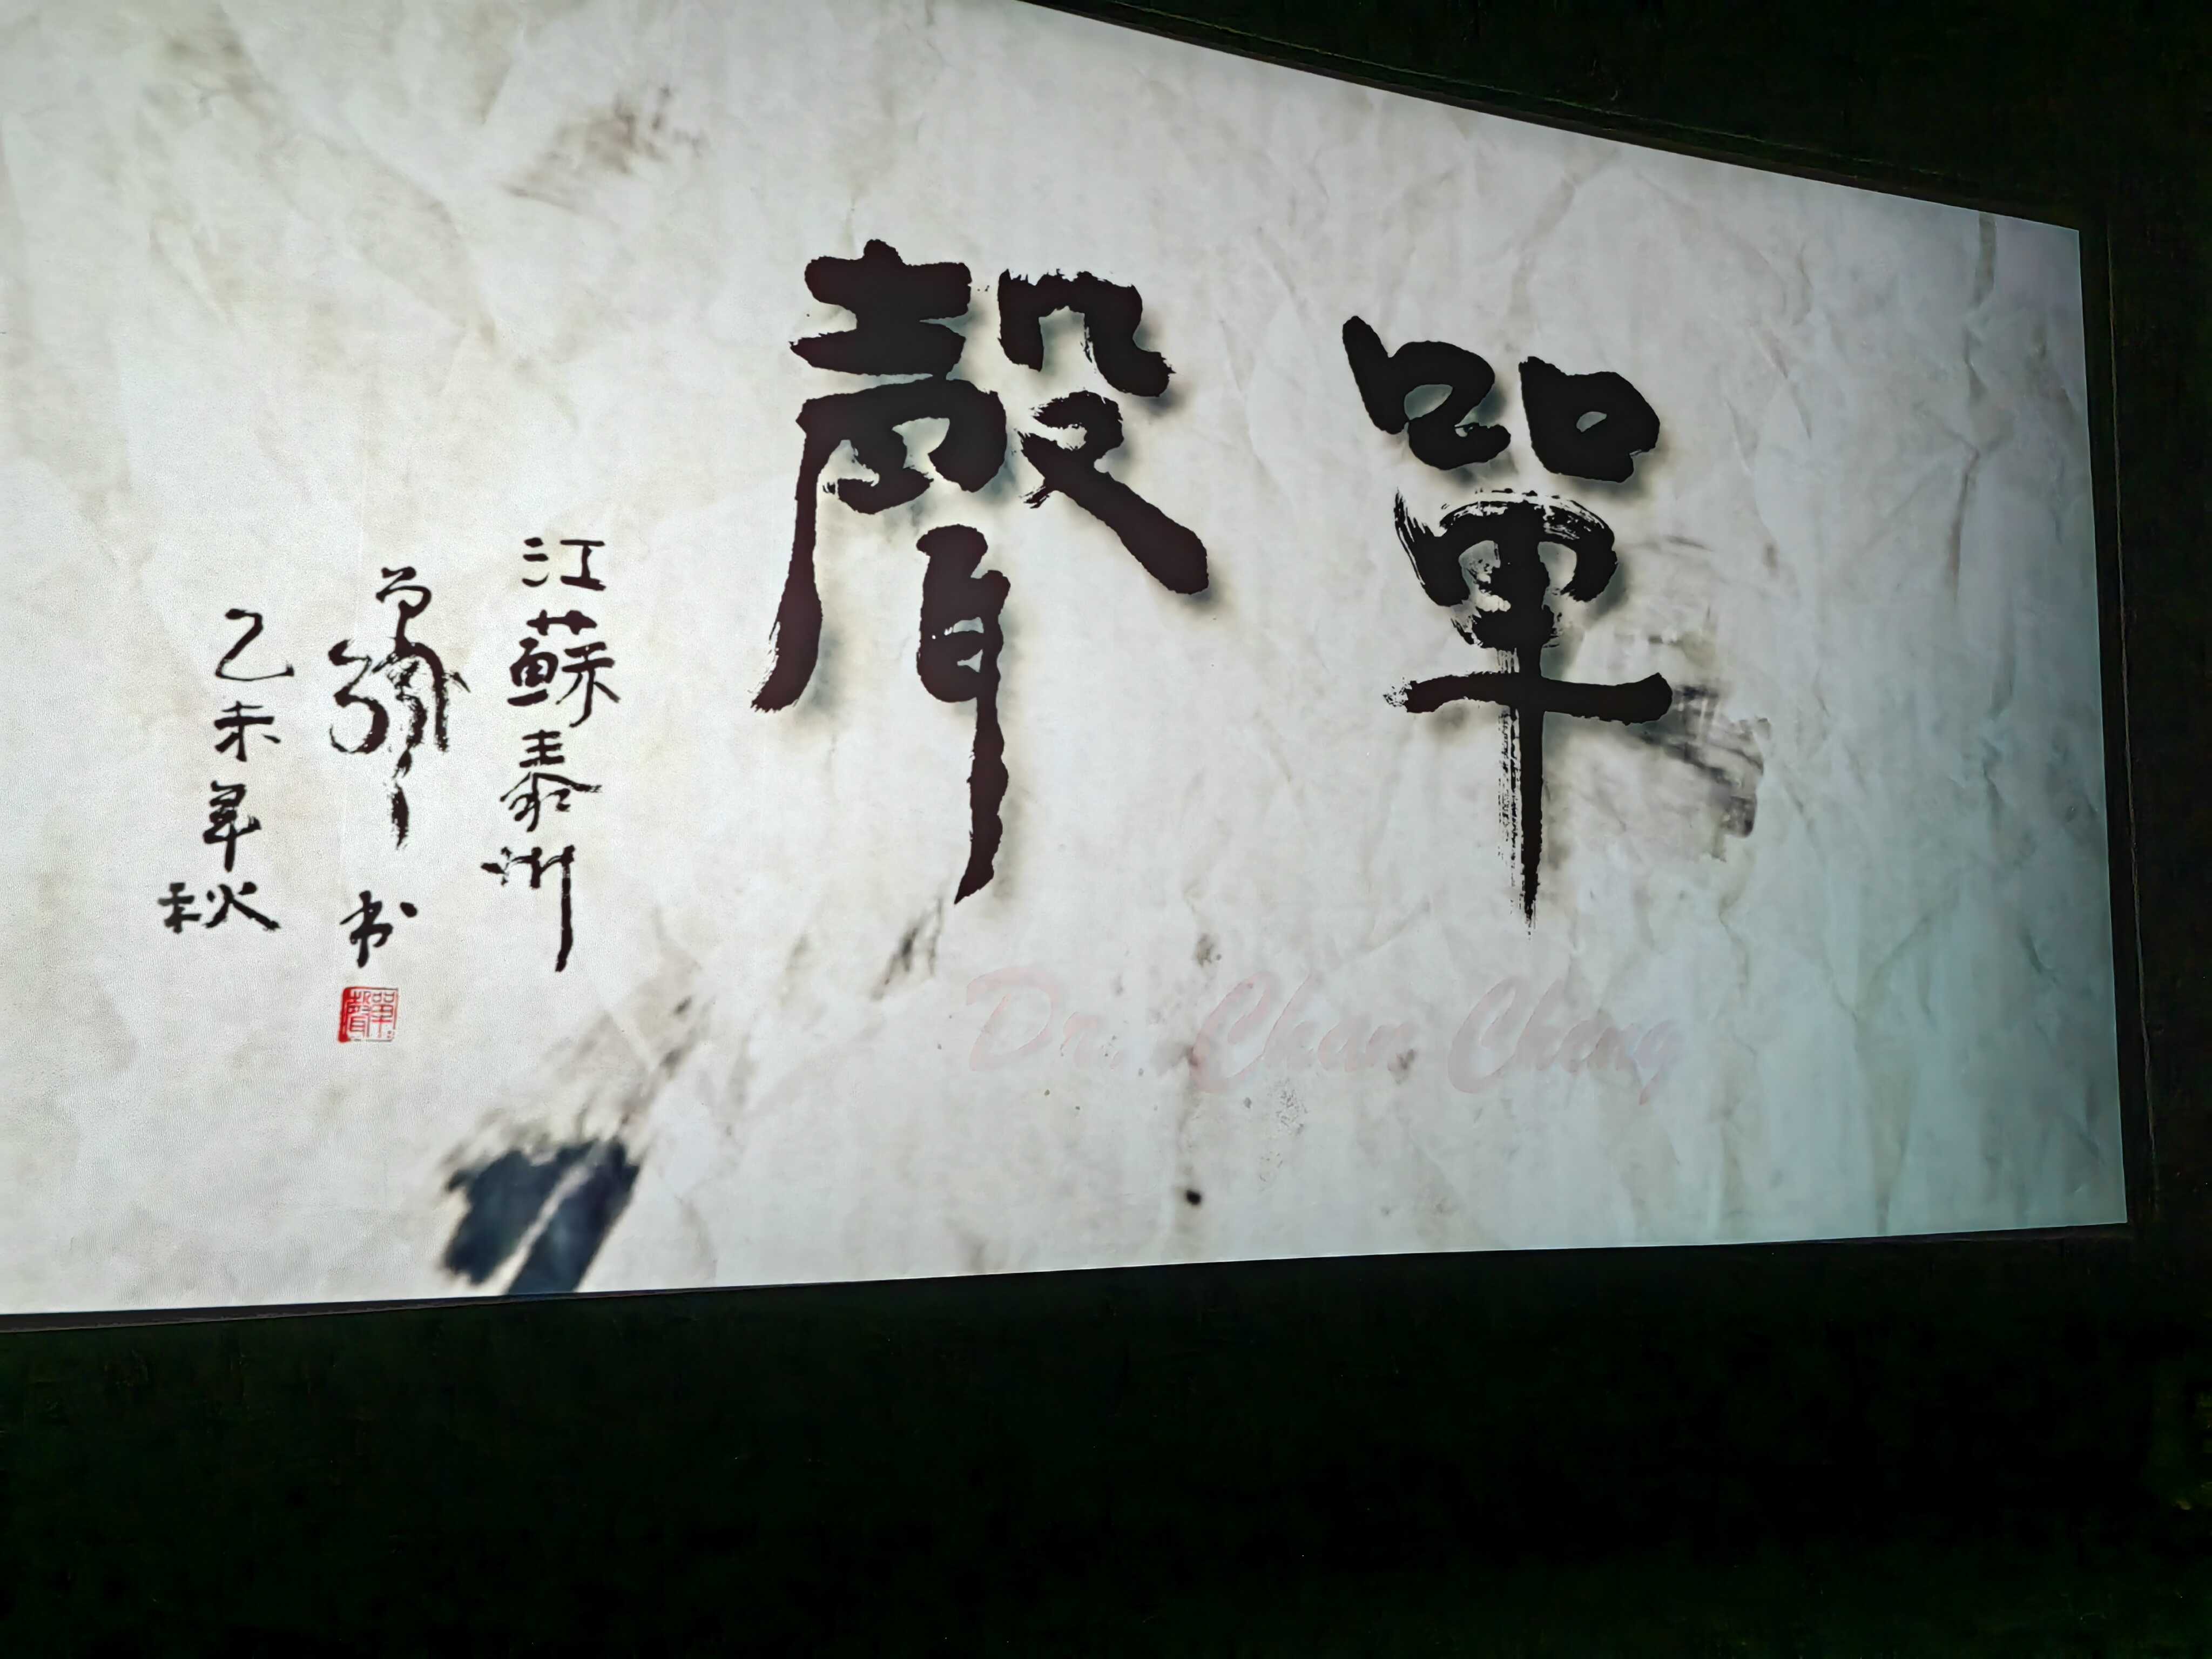 單聲
江蘇泰州
单声
书
乙未年秋
單聲
Dr. Chan Cheng